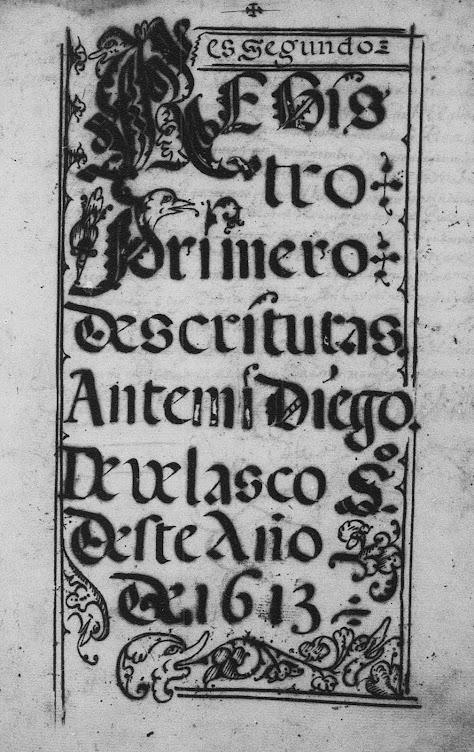 es Segundo
REGis
tro
primero
de scrituras
Ante mi Diego
De velasco S.º
deste Año
De, 1613